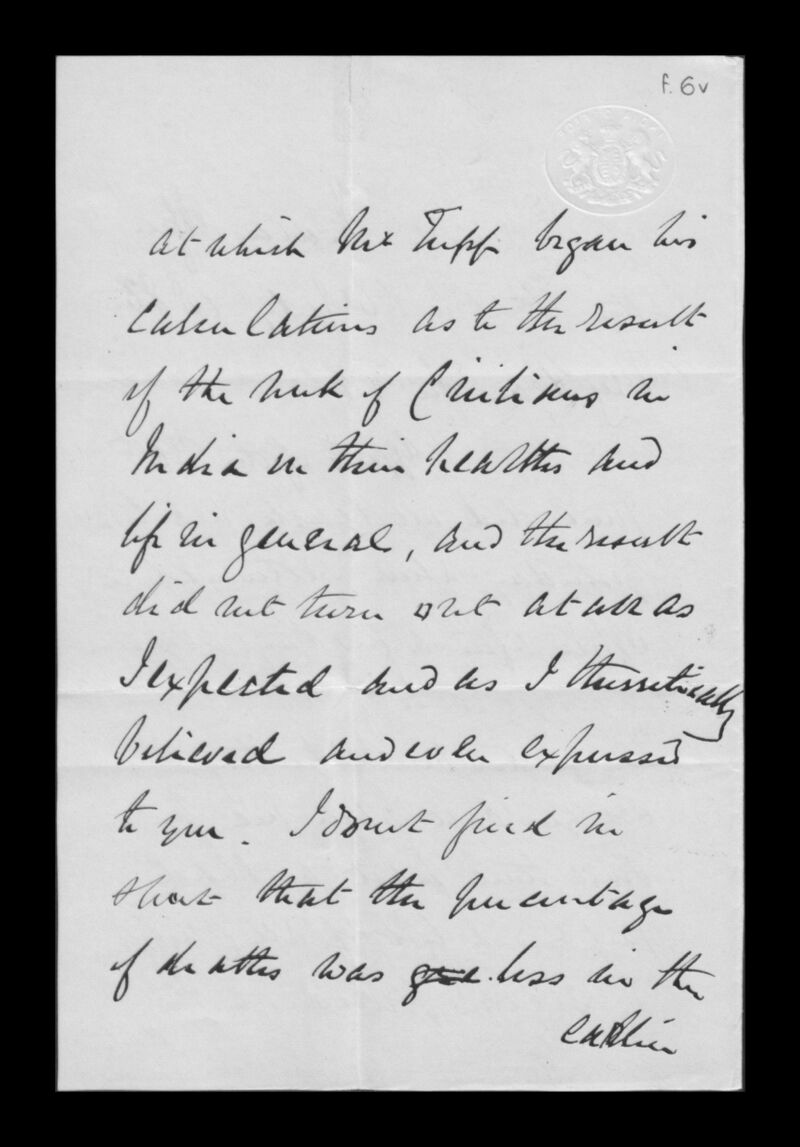 f. 6v
at which Mr Tupp began his
calculations as to the result
of the work of Civilians in
India on their healths and
life in general, and the result
did not turn out at all as
I expected and as I theoretically
believed and even expressed
to you. I do not find in
short that the percentage
of deaths was less in the
earlier